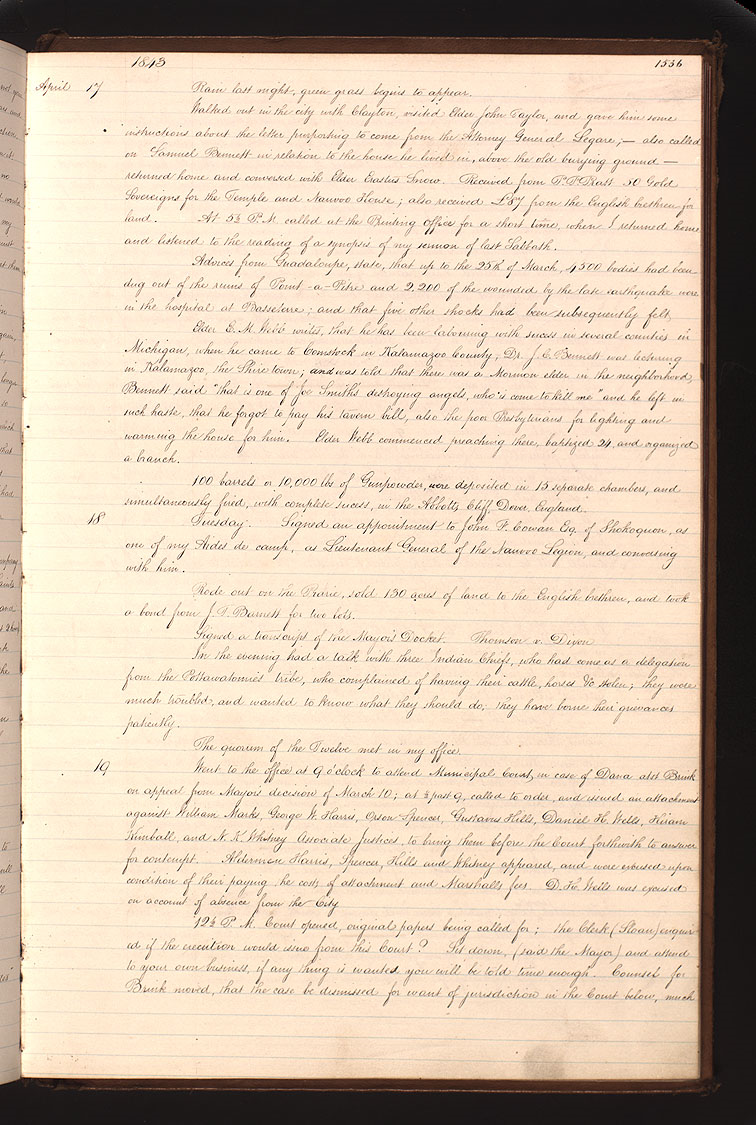 1843 1536
April 17 Rain last night, green grass begins to appear.
Walked out in the city with Clayton, visited Elder John Taylor, and gave him some
instructions about the letter purporting to come from the Attorney General Legare; — also called
on Samuel Bennett in relation to the house he lived in, above the old burying ground —
returned home and conversed with Elder Erastus Snow. Received from P. P. Pratt 50 Gold
Sovereigns for the Temple and Nauvoo House; also received £87 from the English brethren for
land. At 5½ P.M. called at the Printing Office for a short time, when I returned home
and listened to the reading of a synopsis of my sermon of last Sabbath.
Advices from Guadaloupe, state, that up to the 25th of March, 4500 bodies had been
dug out of the ruins of Point-a-Petre and 2,200 of the wounded by the late earthquake were
in the hospital at Basseterre; and that five other shocks had been subsequently felt.
Elder E. M. Webb writes, that he has been labouring with sucess in several counties in
Michigan, when he came to Comstock in Kalamazoo County; Dr. J. C. Bennett was lecturing
in Kalamazoo, the Shire town; and was told that there was a Mormon elder in the neighborhood,
Bennett said "that is one of Joe Smith's destroying angels, who's come to kill me" and he left in
such haste, that he forgot to pay his tavern bill, also the poor Presbyterians for lighting and
warming the house for him. Elder Webb commenced preaching there, baptized 24, and organized
a branch.
100 barrels or 10,000 lbs of Gunpowder, were deposited in 15 separate chambers, and
simultaneously fired, with complete sucess, in the Abbotts Cliff, Dover, England.
18 Tuesday. Signed an appointment to John F. Cowan Esq. of Shokoquon, as
one of my Aides de camp, as Lieutenant General of the Nauvoo Legion, and conversing
with him.
Rode out on the Prairie, sold 130 acres of land to the English brethren, and took
a bond from J. T. Barnett for two lots.
Signed a transcript of the Mayor's Docket. Thomson v. Dixon
In the evening had a talk with three Indian Chiefs, who had come as a delegation
from the Pottawatamie's tribe, who complained of having their cattle, horses &c stolen; they were
much troubled, and wanted to know what they should do; they have borne their grievances
patiently.
The quorum of the Twelve met in my office.
19 Went to the office at 9 o'clock to attend Municipal Court, in case of Dana at Brink
on appeal from Mayor's decision of March 10; at ½ past 9, called to order, and issued an attachment
against William Marks, George W. Harris, Orson Spencer, Gustavus Hills, Daniel H. Wells, Hiram
Kimball, and N. K. Whitney Associate Justices, to bring them before the Court forthwith to answer
for contempt. Aldermen Harris, Spencer, Hills and Whitney appeared, and were excused upon
condition of their paying, the costs of attachment and Marshall's fees. D. H. Wells was excused
on account of absence from the City
12½ P.M. Court opened, original papers being called for; the Clerk (Sloan) enquir
ed if the execution would issue from this Court? Sit down, (said the Mayor) and attend
to your own business, if any thing is wanted you will be told time enough. Counsel for
Brink moved, that the case be dismissed for want of jurisdiction in the Court below, much